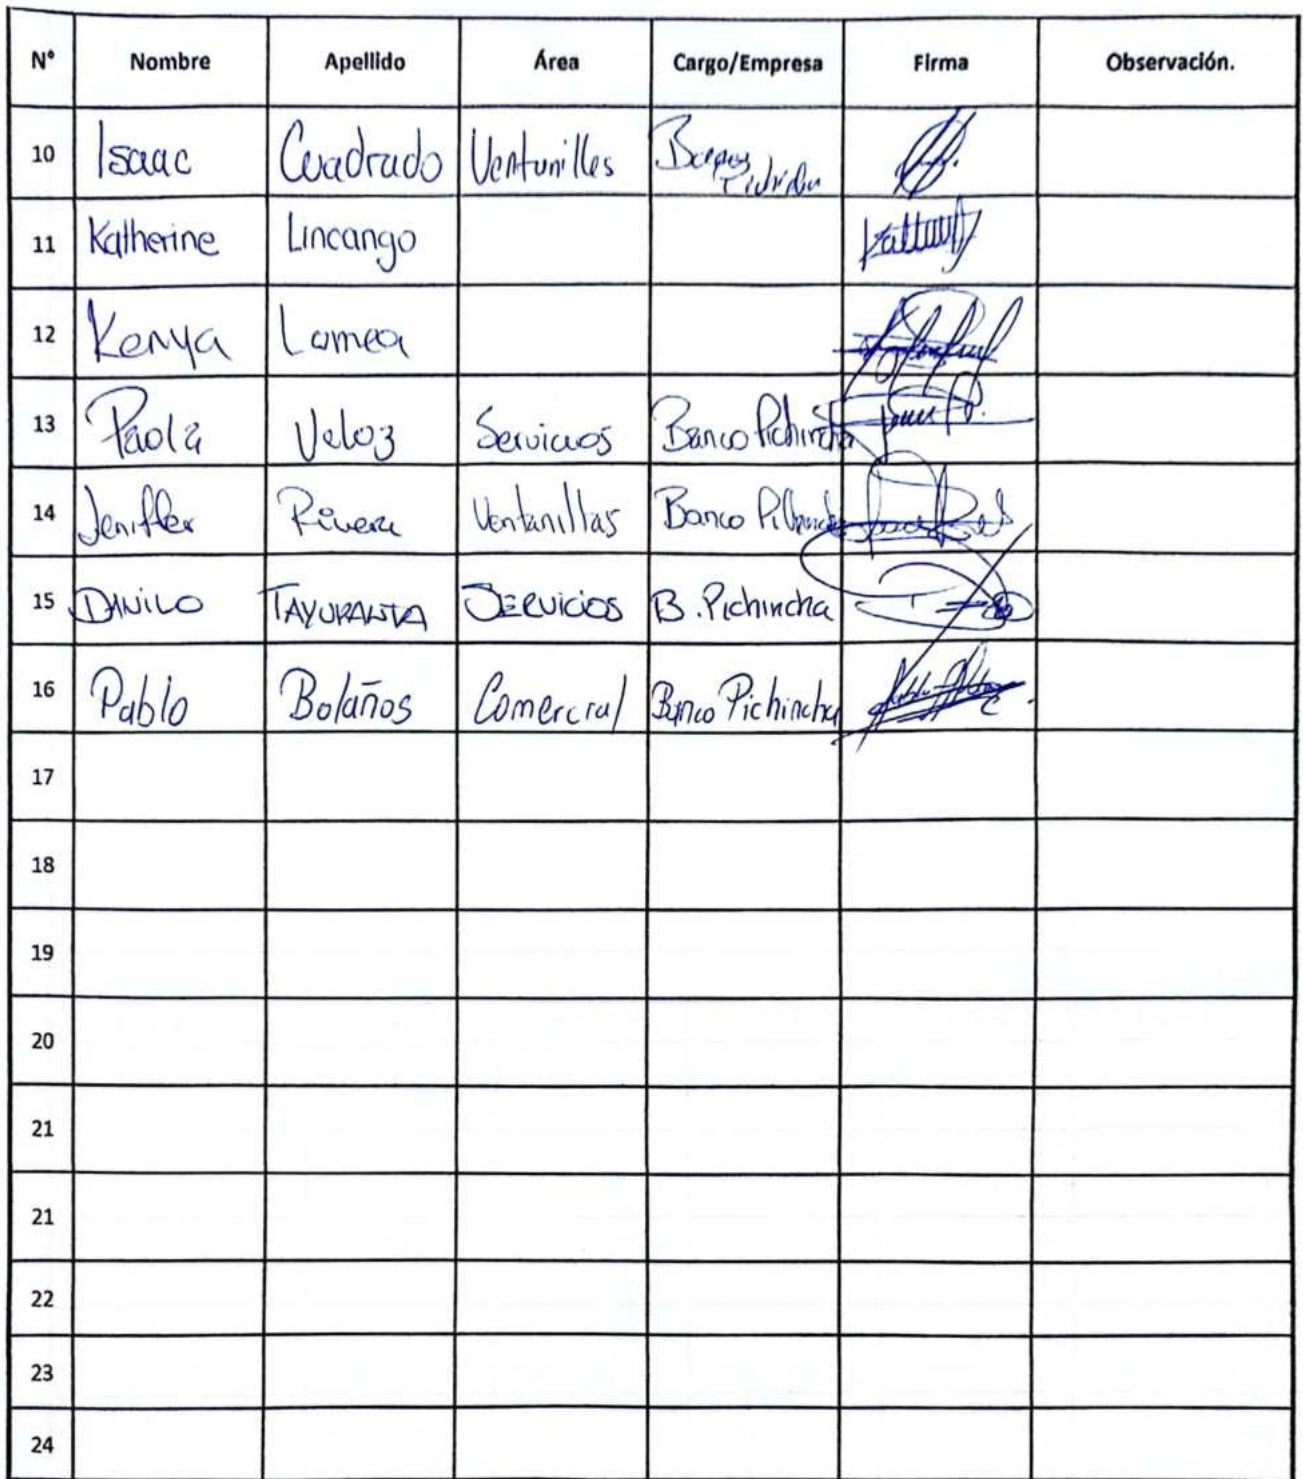 N° Nombre Apellido Área Cargo/Empresa Firma Observación.
10 Isaac Cuadrado Ventanilles Banco Pichincha
11 Katherine Lincango
12 Kenya Lomea
13 Paola Veloz Servicios Banco Pichincha
14 Jeniffer Rivera Ventanillas Banco Pichincha
15 DANILO TAYUPANTA SERVICIOS B. Pichincha
16 Pablo Bolaños Comercial Banco Pichincha
17
18
19
20
21
21
22
23
24